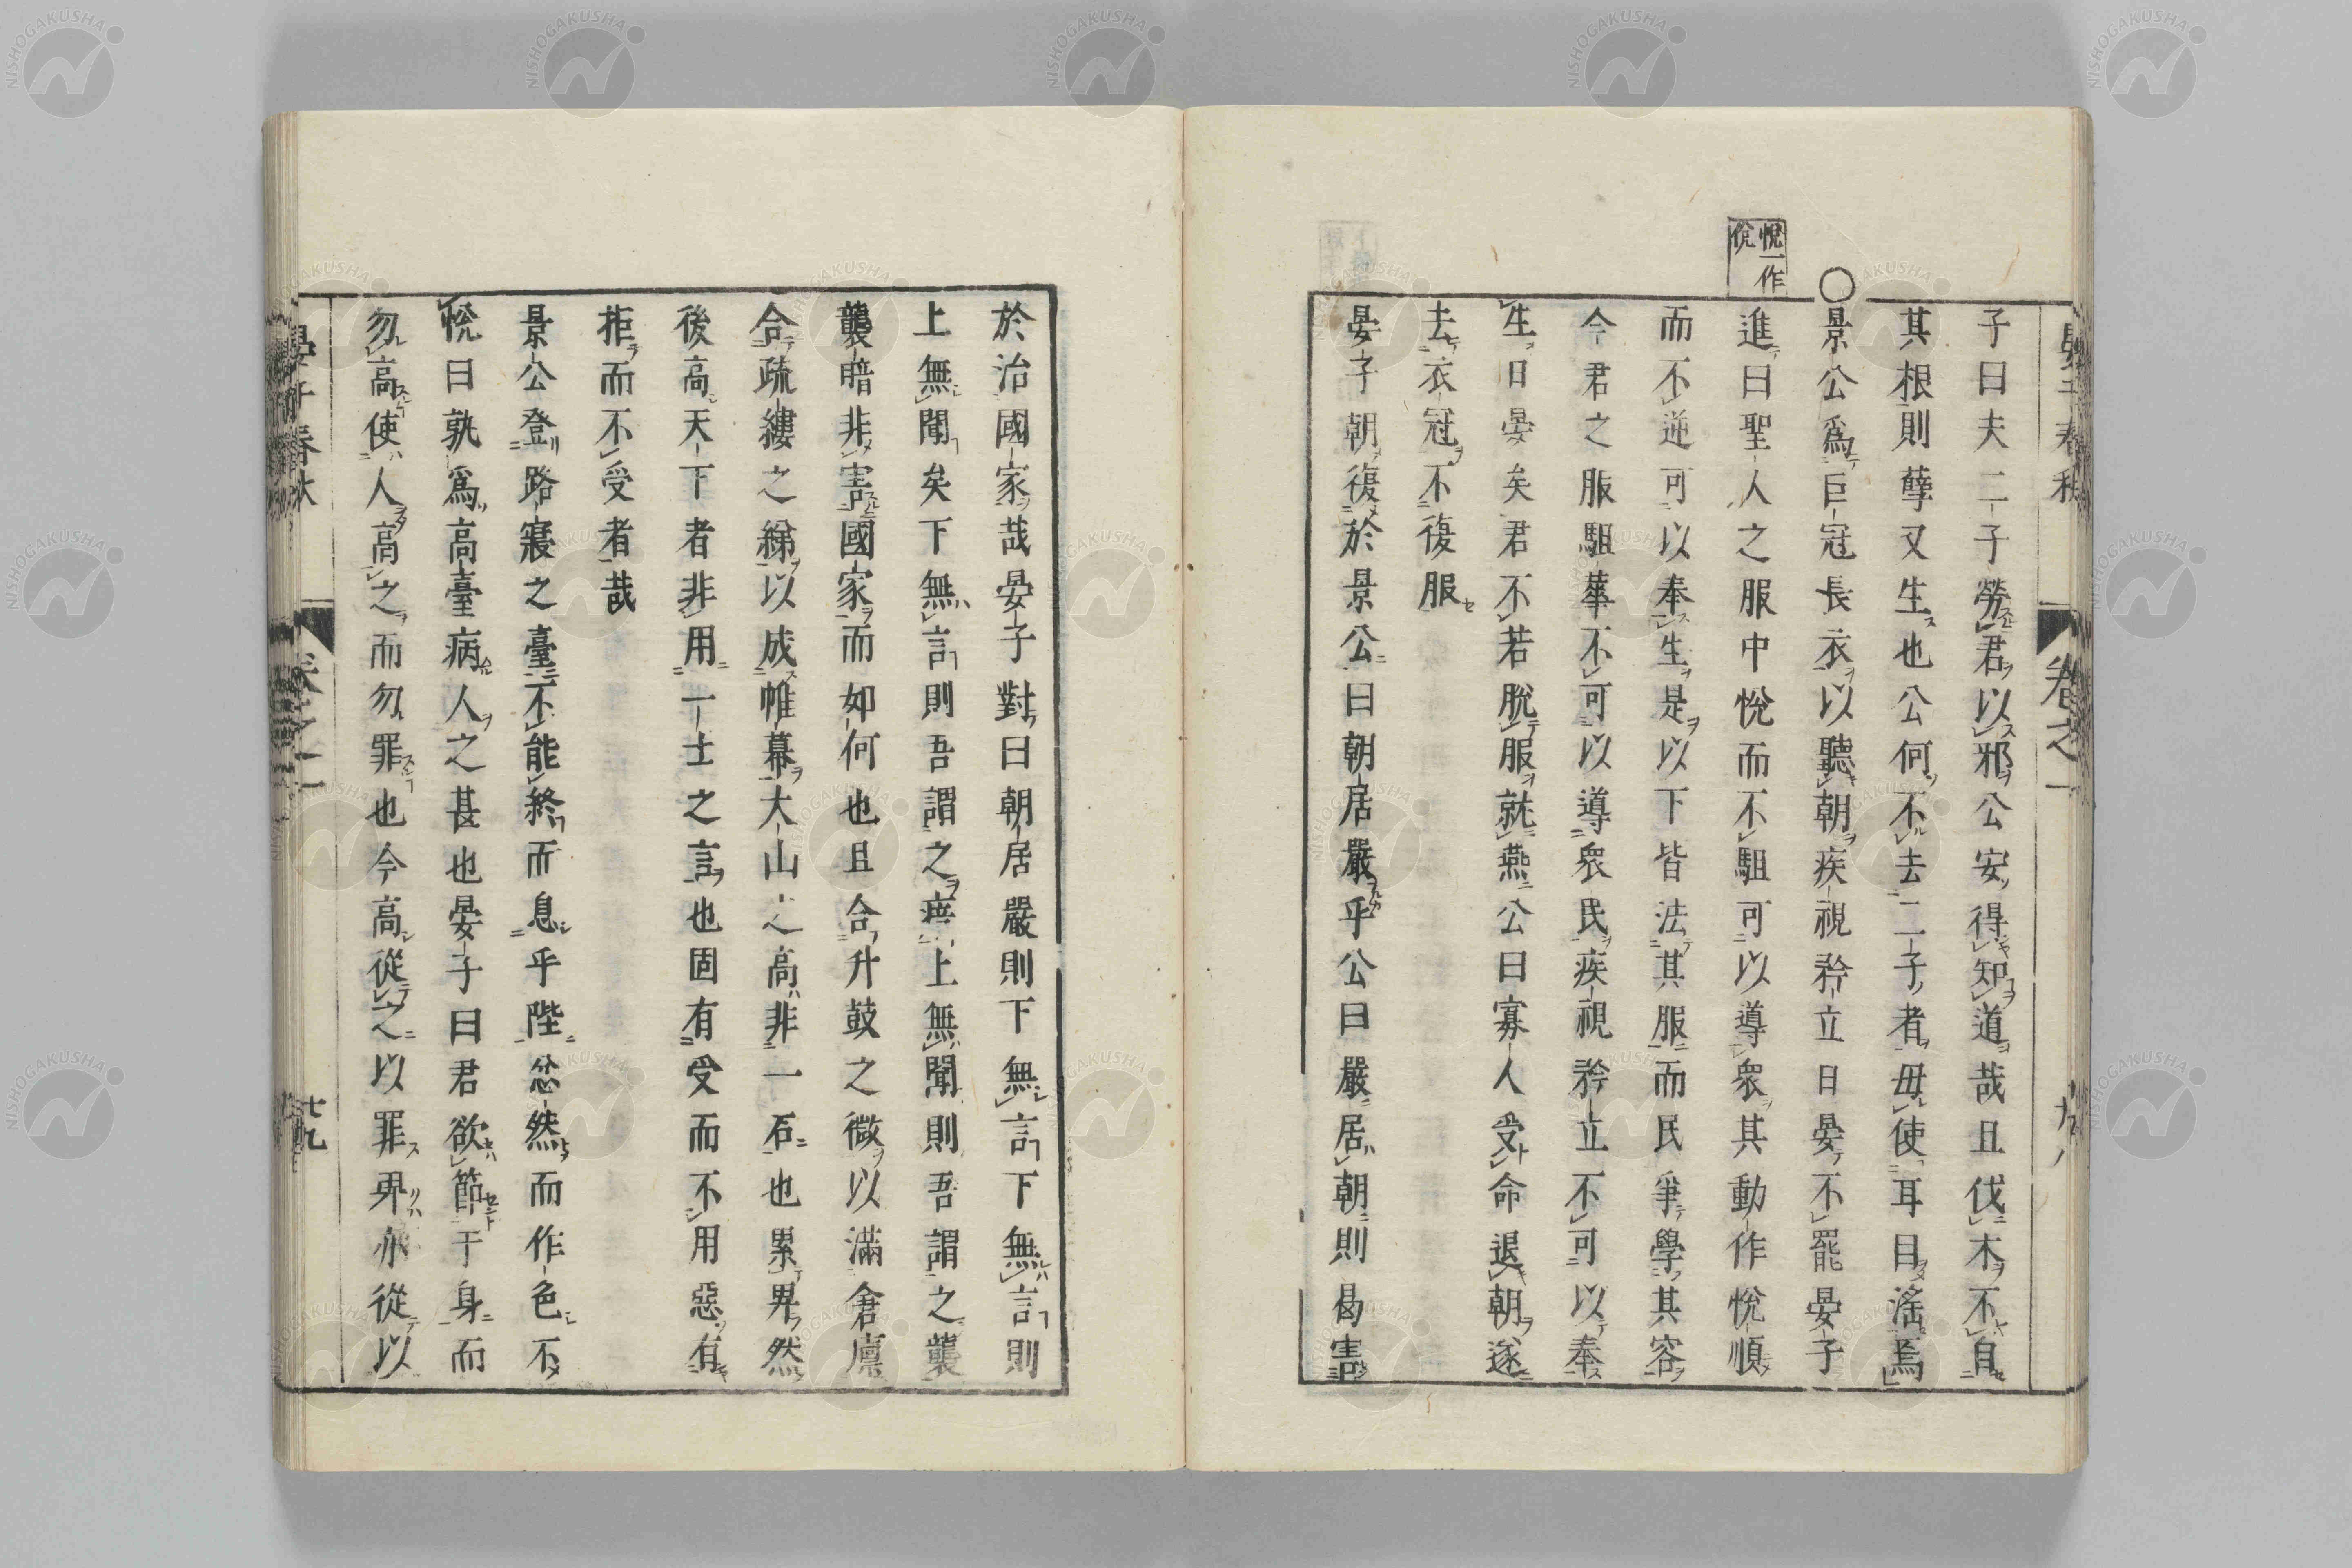 晏子春秋 卷之一
子曰夫二子勞君以邪公安得知道哉且伐木不自
其根則孽又生也公何不去二子者毋使耳目淫焉
○景公爲巨冠長衣以聽朝疾視矜立日晏不罷晏子
悅一作
侻
進曰聖人之服中悅而不駔可以導衆其動作悅順
而不逆可以奉生是以下皆法其服而民爭學其容
今君之服駔華不可以導衆民疾視矜立不可以奉
生日晏矣君不若脫服就燕公曰寡人受命退朝遂
去衣冠不復服
晏子朝復於景公曰朝居嚴乎公曰嚴居朝則曷害
於治國家哉晏子對曰朝居嚴則下無言下無言則
上無聞矣下無言則吾謂之瘖上無聞則吾謂之聾
聾暗非害國家而如何也且合升鼓之微以滿倉廩
合疏縷之綈以成帷幕大山之高非一石也累卑然
後高天下者非用一士之言也固有受而不用惡有
拒而不受者哉
景公登路寢之臺不能終而息乎陛忿然而作色不
悅曰孰爲高臺病人之甚也晏子曰君欲節于身而
勿高使人高之而勿罪也今高從之以罪卑亦從以
晏子春秋 卷之一 十九
NISHOGAKUSHA